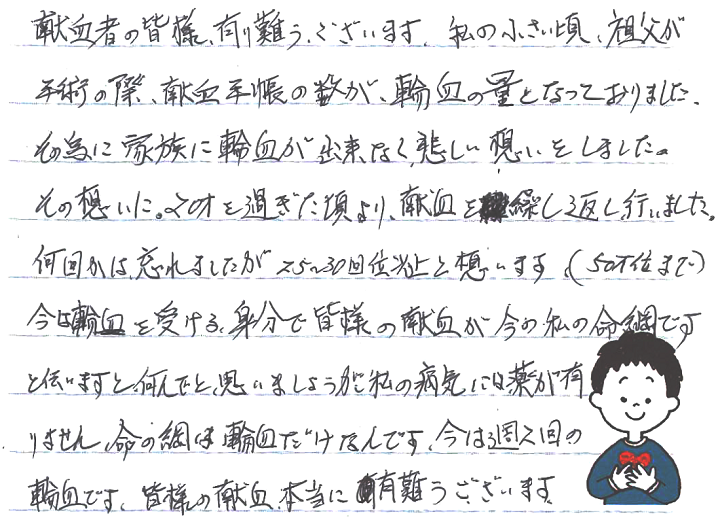 献血者の皆様、有り難うございます。私の小さい頃、祖父が
手術の際、献血手帳の数が、輸血の量となっておりました。
その為に家族に輸血が出来なく、悲しい想いをしました。
その想いに。20才を過ぎた頃より、献血を繰り返し行いました。
何回かは、忘れましたが25~30回位以上と想います。(50才位まで)
今は輸血を受ける、身分で皆様の献血が今の私の命綱です
と伝いますと何んでと、思いましょうが私の病気には薬が有
りません。命の綱は輸血だけなんです。今は3週2回の
輸血です。皆様の献血、本当に有難うございます。